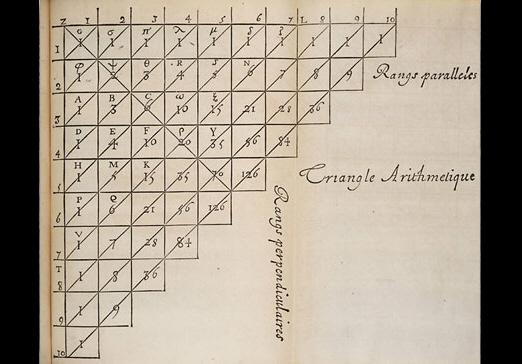 Z 1 2 3 4 5 6 7 L 8 9 10
σ π λ μ
1 1 1 1 1 1 1 1 1 1 1
φ ψ θ R S N
2 1 2 3 4 5 6 7 8 9
Rangs paralleles
A B C ω ξ
3 1 3 6 10 15 21 28 36
D E F ρ Y
4 1 4 10 20 35 56 84
H M K
5 1 5 15 35 70 126
Triangle Arithmetique
P Q
6 1 6 21 56 126
V
7 1 7 28 84
T
8 1 8 36
9 1 9
10 1
Rangs perpendiculaires